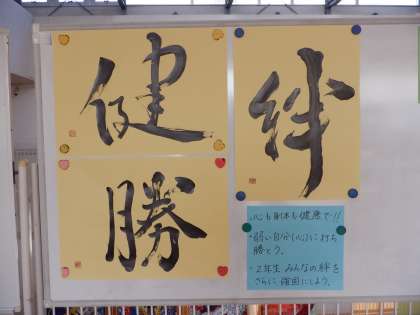 健
勝
絆
心も身体も健康で!!
・弱い自分(心)に打ち
勝とう。
・2年生 みんなの絆を
さらに強固にしよう。